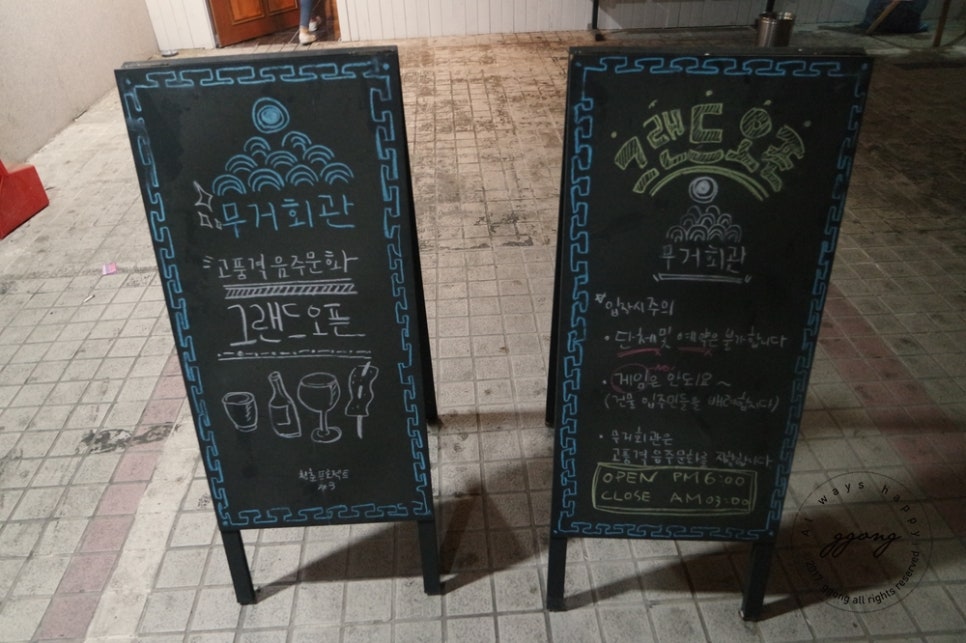 무거회관
고품격음주문화
그랜드오픈
프로젝트
그랜드오픈
무거회관
입장시주의
· 단체및 예약은 불가합니다
· 게임은 안되요~
(건물 입주민들을 배려합시다)
· 무거회관은
고품격음주문화를 지향합니다
OPEN PM 6:00
CLOSE AM 03:00
Always happy
ggong
2017 ggong all rights reserved